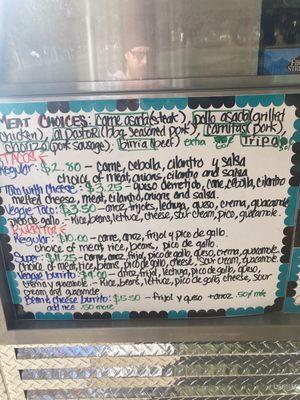 MEAT CHOICES: carne asada (steak), pollo asado (grilled
chicken), al pastor (hog seasoned pork), carnitas (pork),
chorizo (pork sausage), birria (beef) extra Tripa
TACOS
Regular: $2.80 - carne, cebolla, cilantro y salsa
choice of meat, onions, cilantro and salsa
Taco with cheese: $3.25 - queso derretido, carne, cebolla, cilantro
melted cheese, meat, cilantro, onions and salsa.
Veggie Taco: $3.50 - arroz, frijoles, lechuga, queso, crema, guacamole,
pico de gallo. - Rice, beans, lettuce, cheese, sour cream, pico, guacamole.
BURRITOS
Regular: $10.00 - carne, arroz, frijol y pico de gallo.
choice of meat, rice, beans, pico de gallo.
Super: $11.25 - carne, arroz, frijol, pico de gallo, queso, crema, guacamole.
choice of meat, rice, beans, pico de gallo, cheese, sour cream, guacamole.
Veggie burrito: $9.00 - arroz, frijol, lechuga, pico de gallo, queso,
crema y guacamole. - Rice, beans, lettuce, pico de gallo, cheese, sour
cream and guacamole
Bean & cheese burrito: $5.50 - frijol y queso +arroz .50¢ más
add rice .50 more